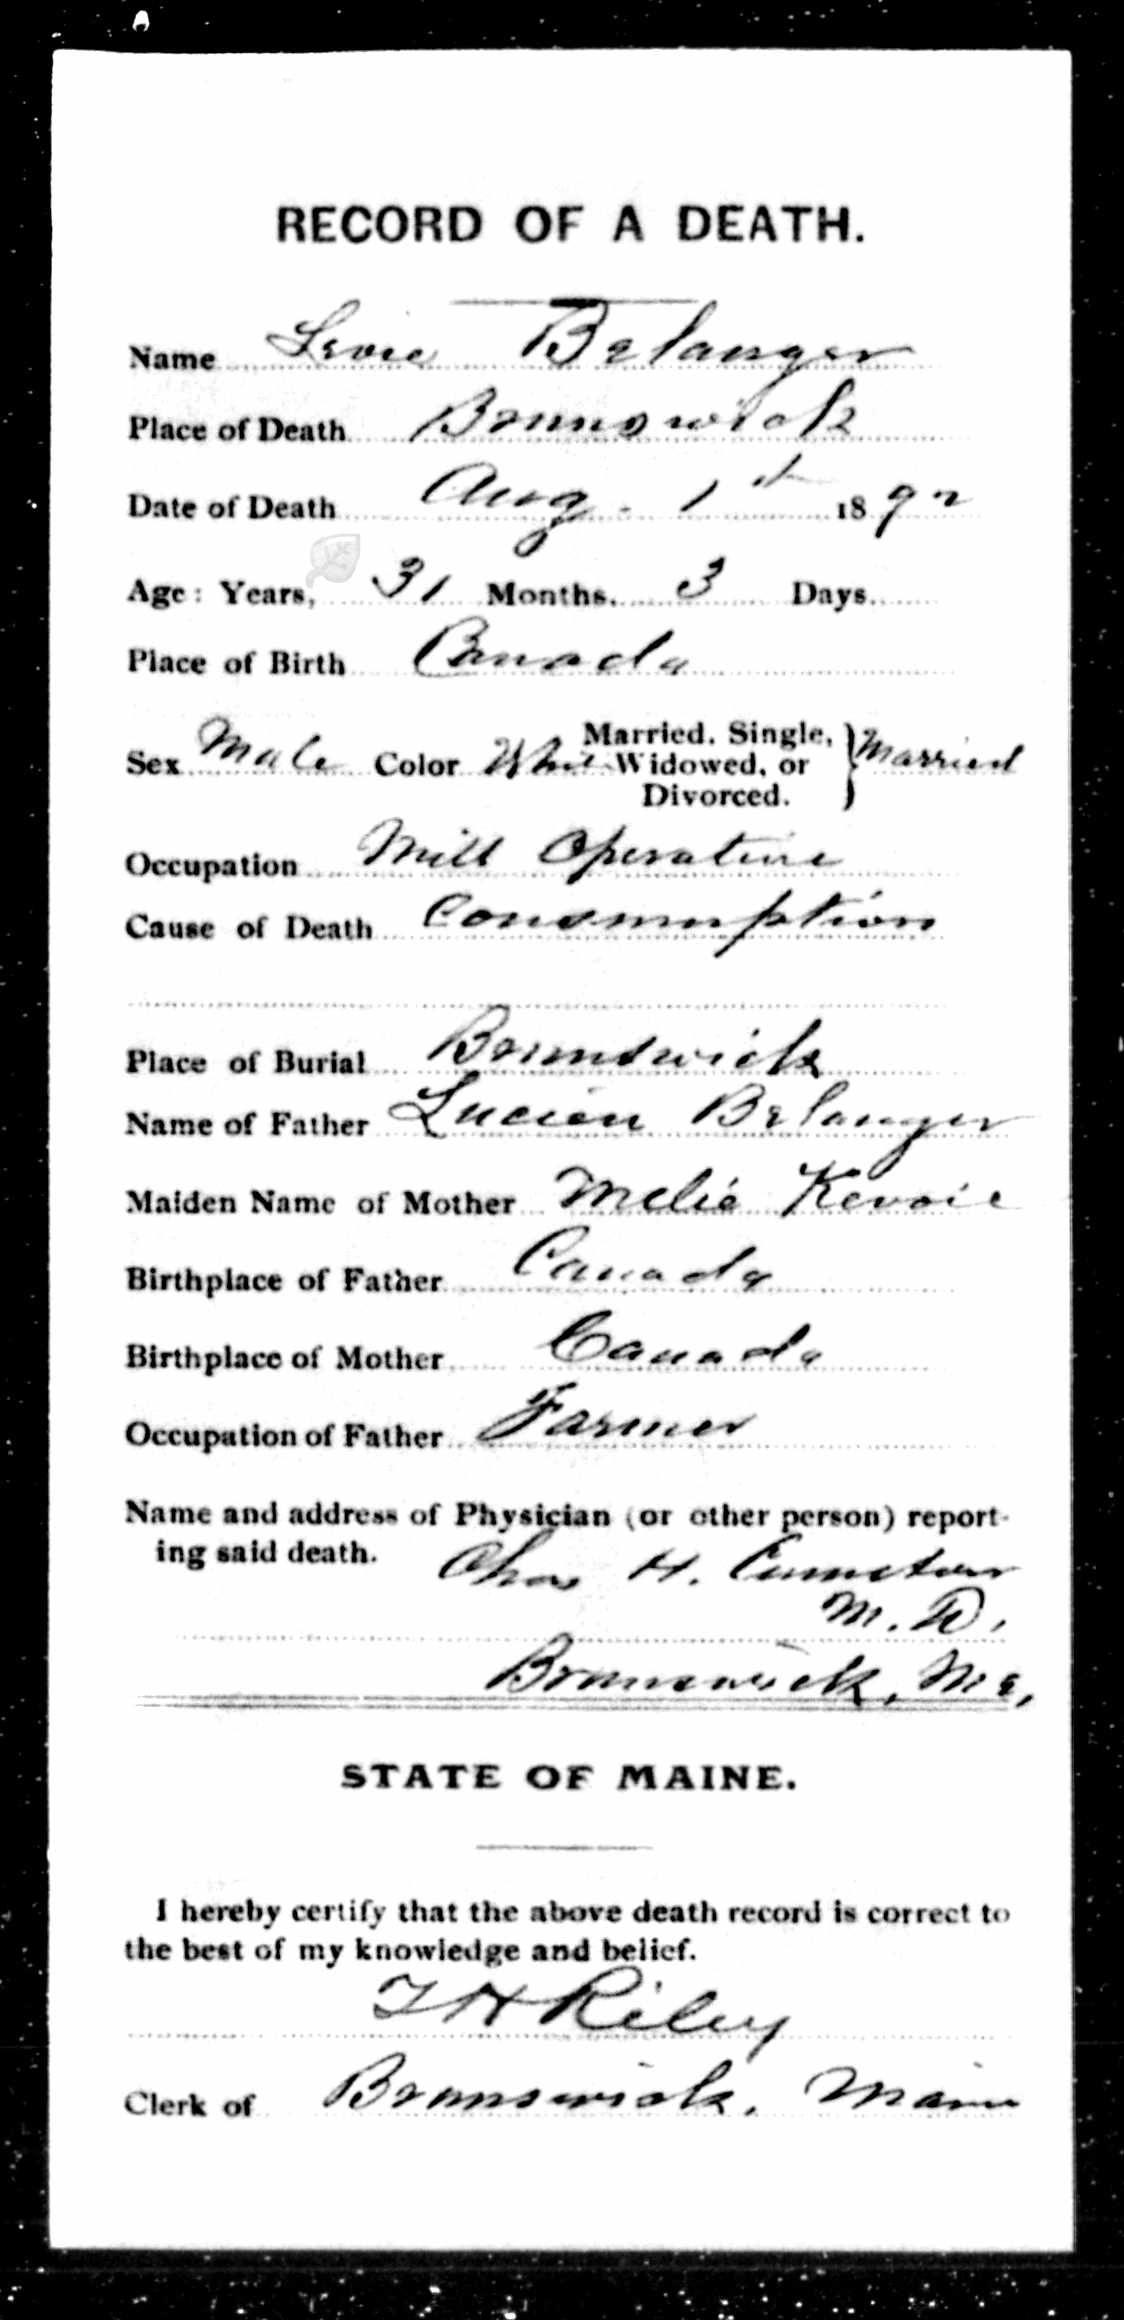 RECORD OF A DEATH.
Name Levie Belanger
Place of Death Brunswick
Date of Death Aug. 1st 1892
Age: Years, 31 Months, 3 Days
Place of Birth Canada
Sex Male Color White Married, Single, Widowed, or Divorced. } Married
Occupation Mill Operative
Cause of Death Consumption
Place of Burial Brunswick
Name of Father Lucien Belanger
Maiden Name of Mother Melie
Birthplace of Father Canada
Birthplace of Mother Canada
Occupation of Father Farmer
Name and address of Physician (or other person) report-
ing said death. Chas H.
M. D.
Brunswick, Me.
STATE OF MAINE.
I hereby certify that the above death record is correct to
the best of my knowledge and belief.
Riley
Clerk of Brunswick, Maine